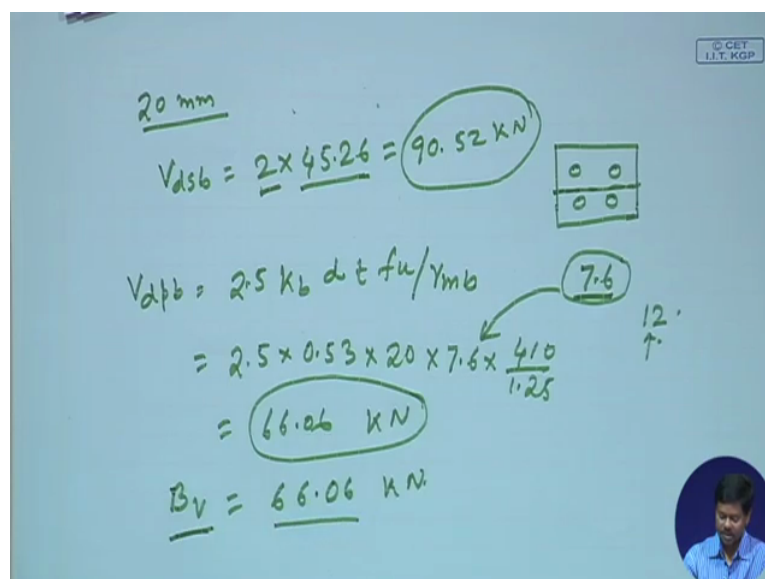 © CET
I.I.T. KGP
20 mm
Vdsb = 2 × 45.26 = 90.52 KN
Vdpb = 2.5 Kb d t fu/γmb
7.6
12.
= 2.5 × 0.53 × 20 × 7.6 × 410/1.25
= 66.06 KN
Bv = 66.06 KN.